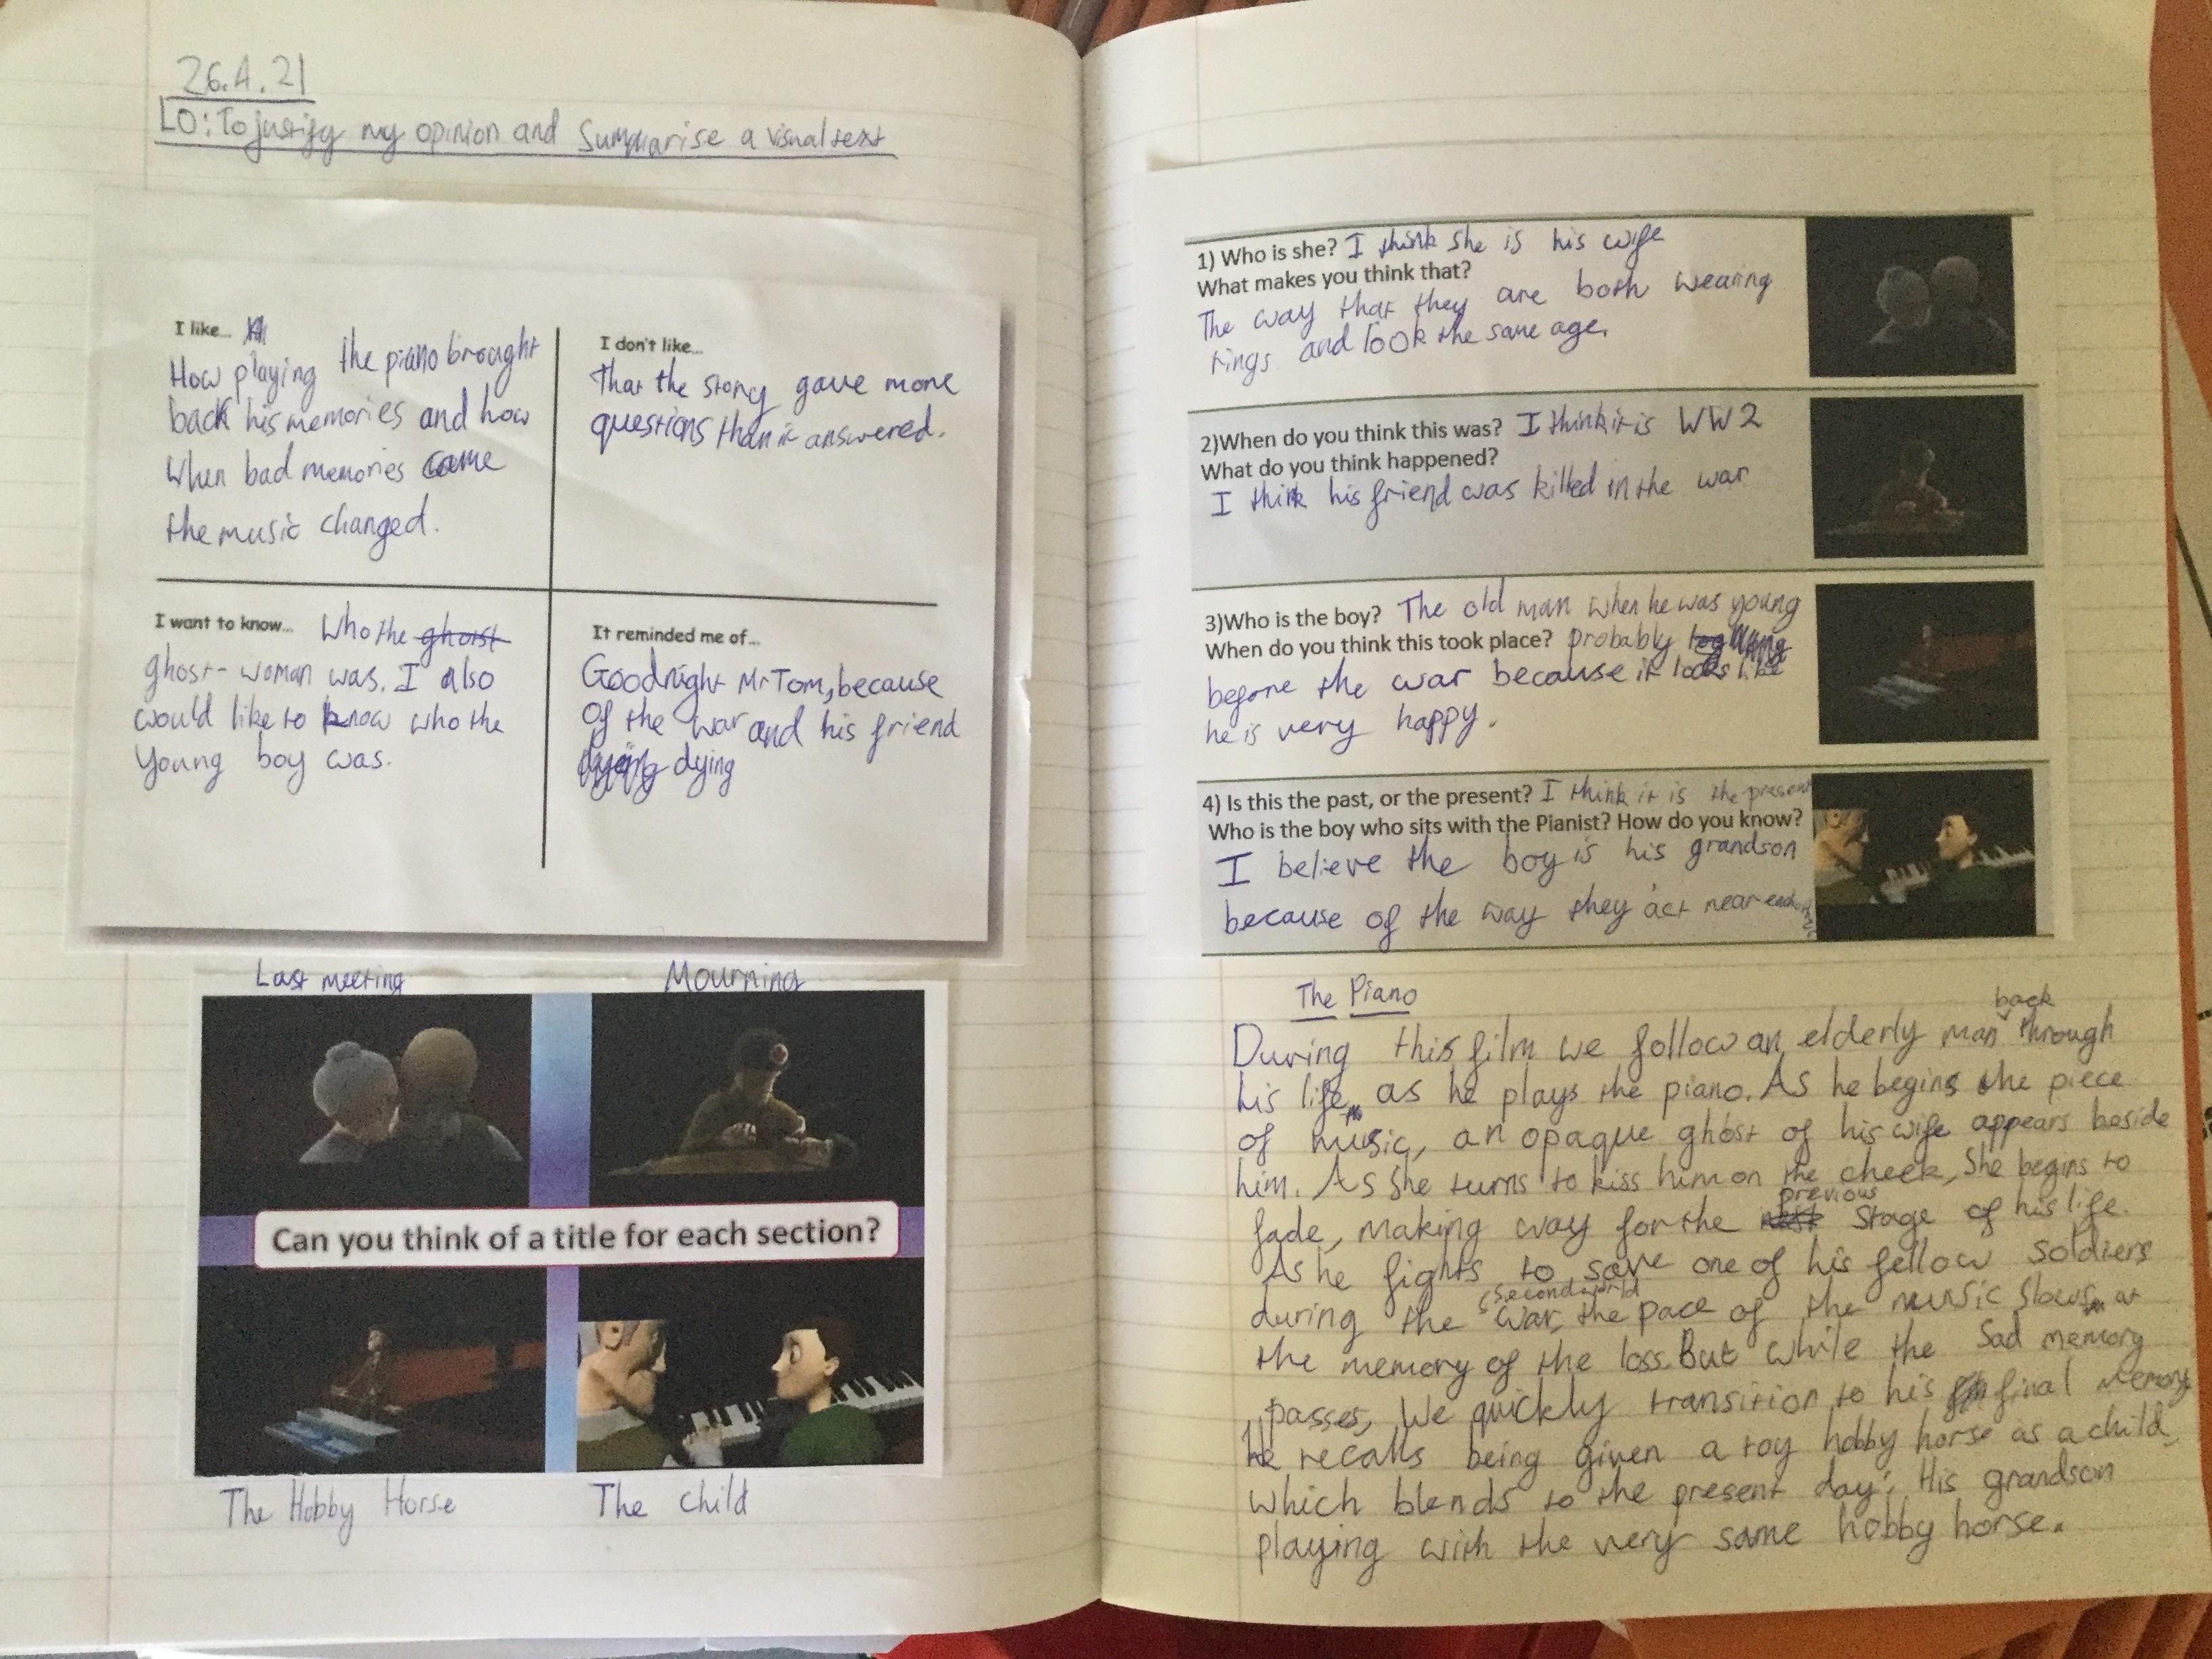 26.4.21
LO: To justify my opinion and Summarise a visual text
I like...
How playing the piano brought
back his memories and how
when bad memories came
the music changed.
I don't like...
That the story gave more
questions than it answered.
I want to know... Who the ghoist
ghost-woman was. I also
would like to know who the
young boy was.
It reminded me of...
Goodnight Mr Tom, because
of the war and his friend
dying
Last meeting
Mourning
Can you think of a title for each section?
The Hobby Horse
The child
1) Who is she? I think she is his wife
What makes you think that?
The way that they are both wearing
rings and look the same age.
2)When do you think this was? I think it is WW2
What do you think happened?
I think his friend was killed in the war
3)Who is the boy? The old man when he was young
When do you think this took place? probably
before the war because it looks like
he is very happy.
4) Is this the past, or the present? I think it is the present
Who is the boy who sits with the Pianist? How do you know?
I believe the boy is his grandson
because of the way they act near each other
The Piano
During this film we follow an elderly man back through
his life, as he plays the piano. As he begins the piece
of music, an opaque ghost of his wife appears beside
him. As she turns to kiss him on the cheek, She begins to
fade, making way for the previous stage of his life.
As he fights to save one of his fellow soldiers
during the second world war, the pace of the music slows at
the memory of the loss. But while the sad memory
passes, we quickly transition to his final memory
He recalls being given a toy hobby horse as a child,
which blends to the present day; His grandson
playing with the very same hobby horse.